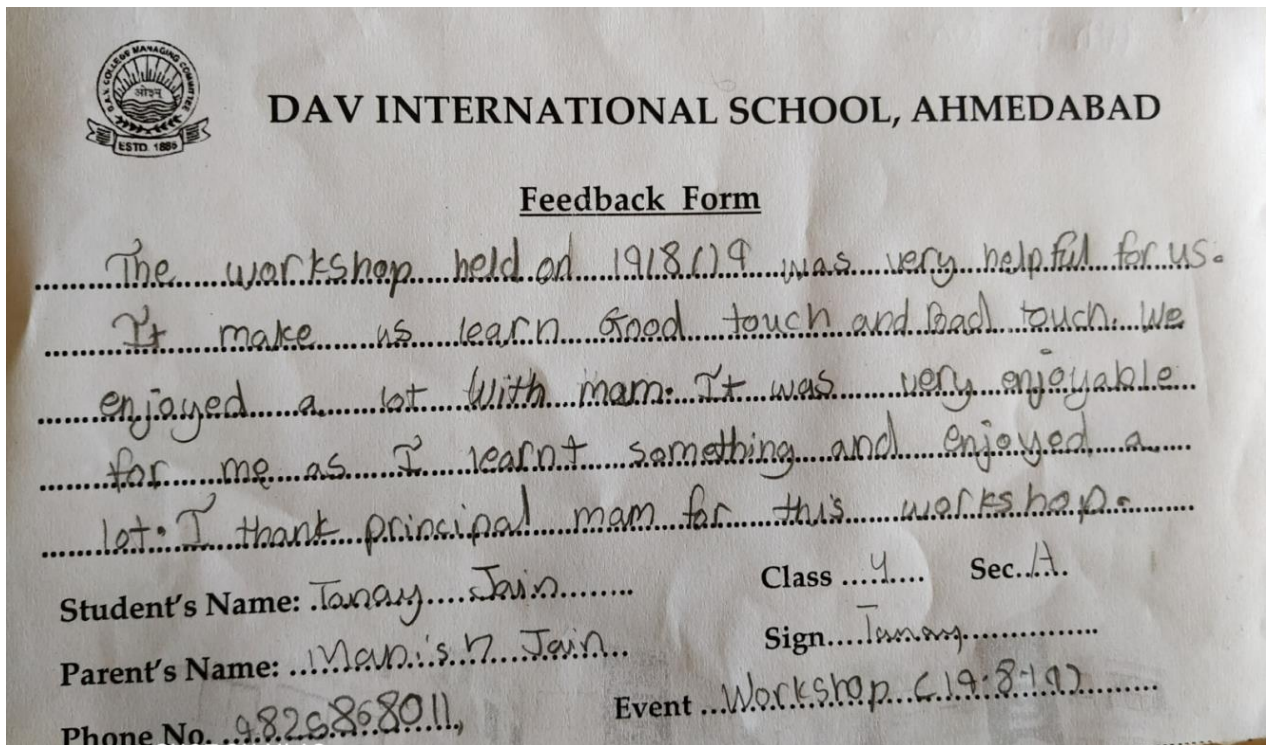 D.A.V. COLLEGE MANAGING COMMITTEE
ओ३म्
ESTD. 1885
DAV INTERNATIONAL SCHOOL, AHMEDABAD
Feedback Form
The workshop held on 19/8/19 was very helpful for us.
It make us learn Good touch and Bad touch. We
enjoyed a lot With mam. It was very enjoyable
for me as I learnt something and enjoyed a
lot. I thank principal mam for this workshop.
Student's Name: Tanay Jain Class 4 Sec. A.
Parent's Name: Manish Jain Sign Tanay
Phone No. 9826868011, Event Workshop (19:8:19)